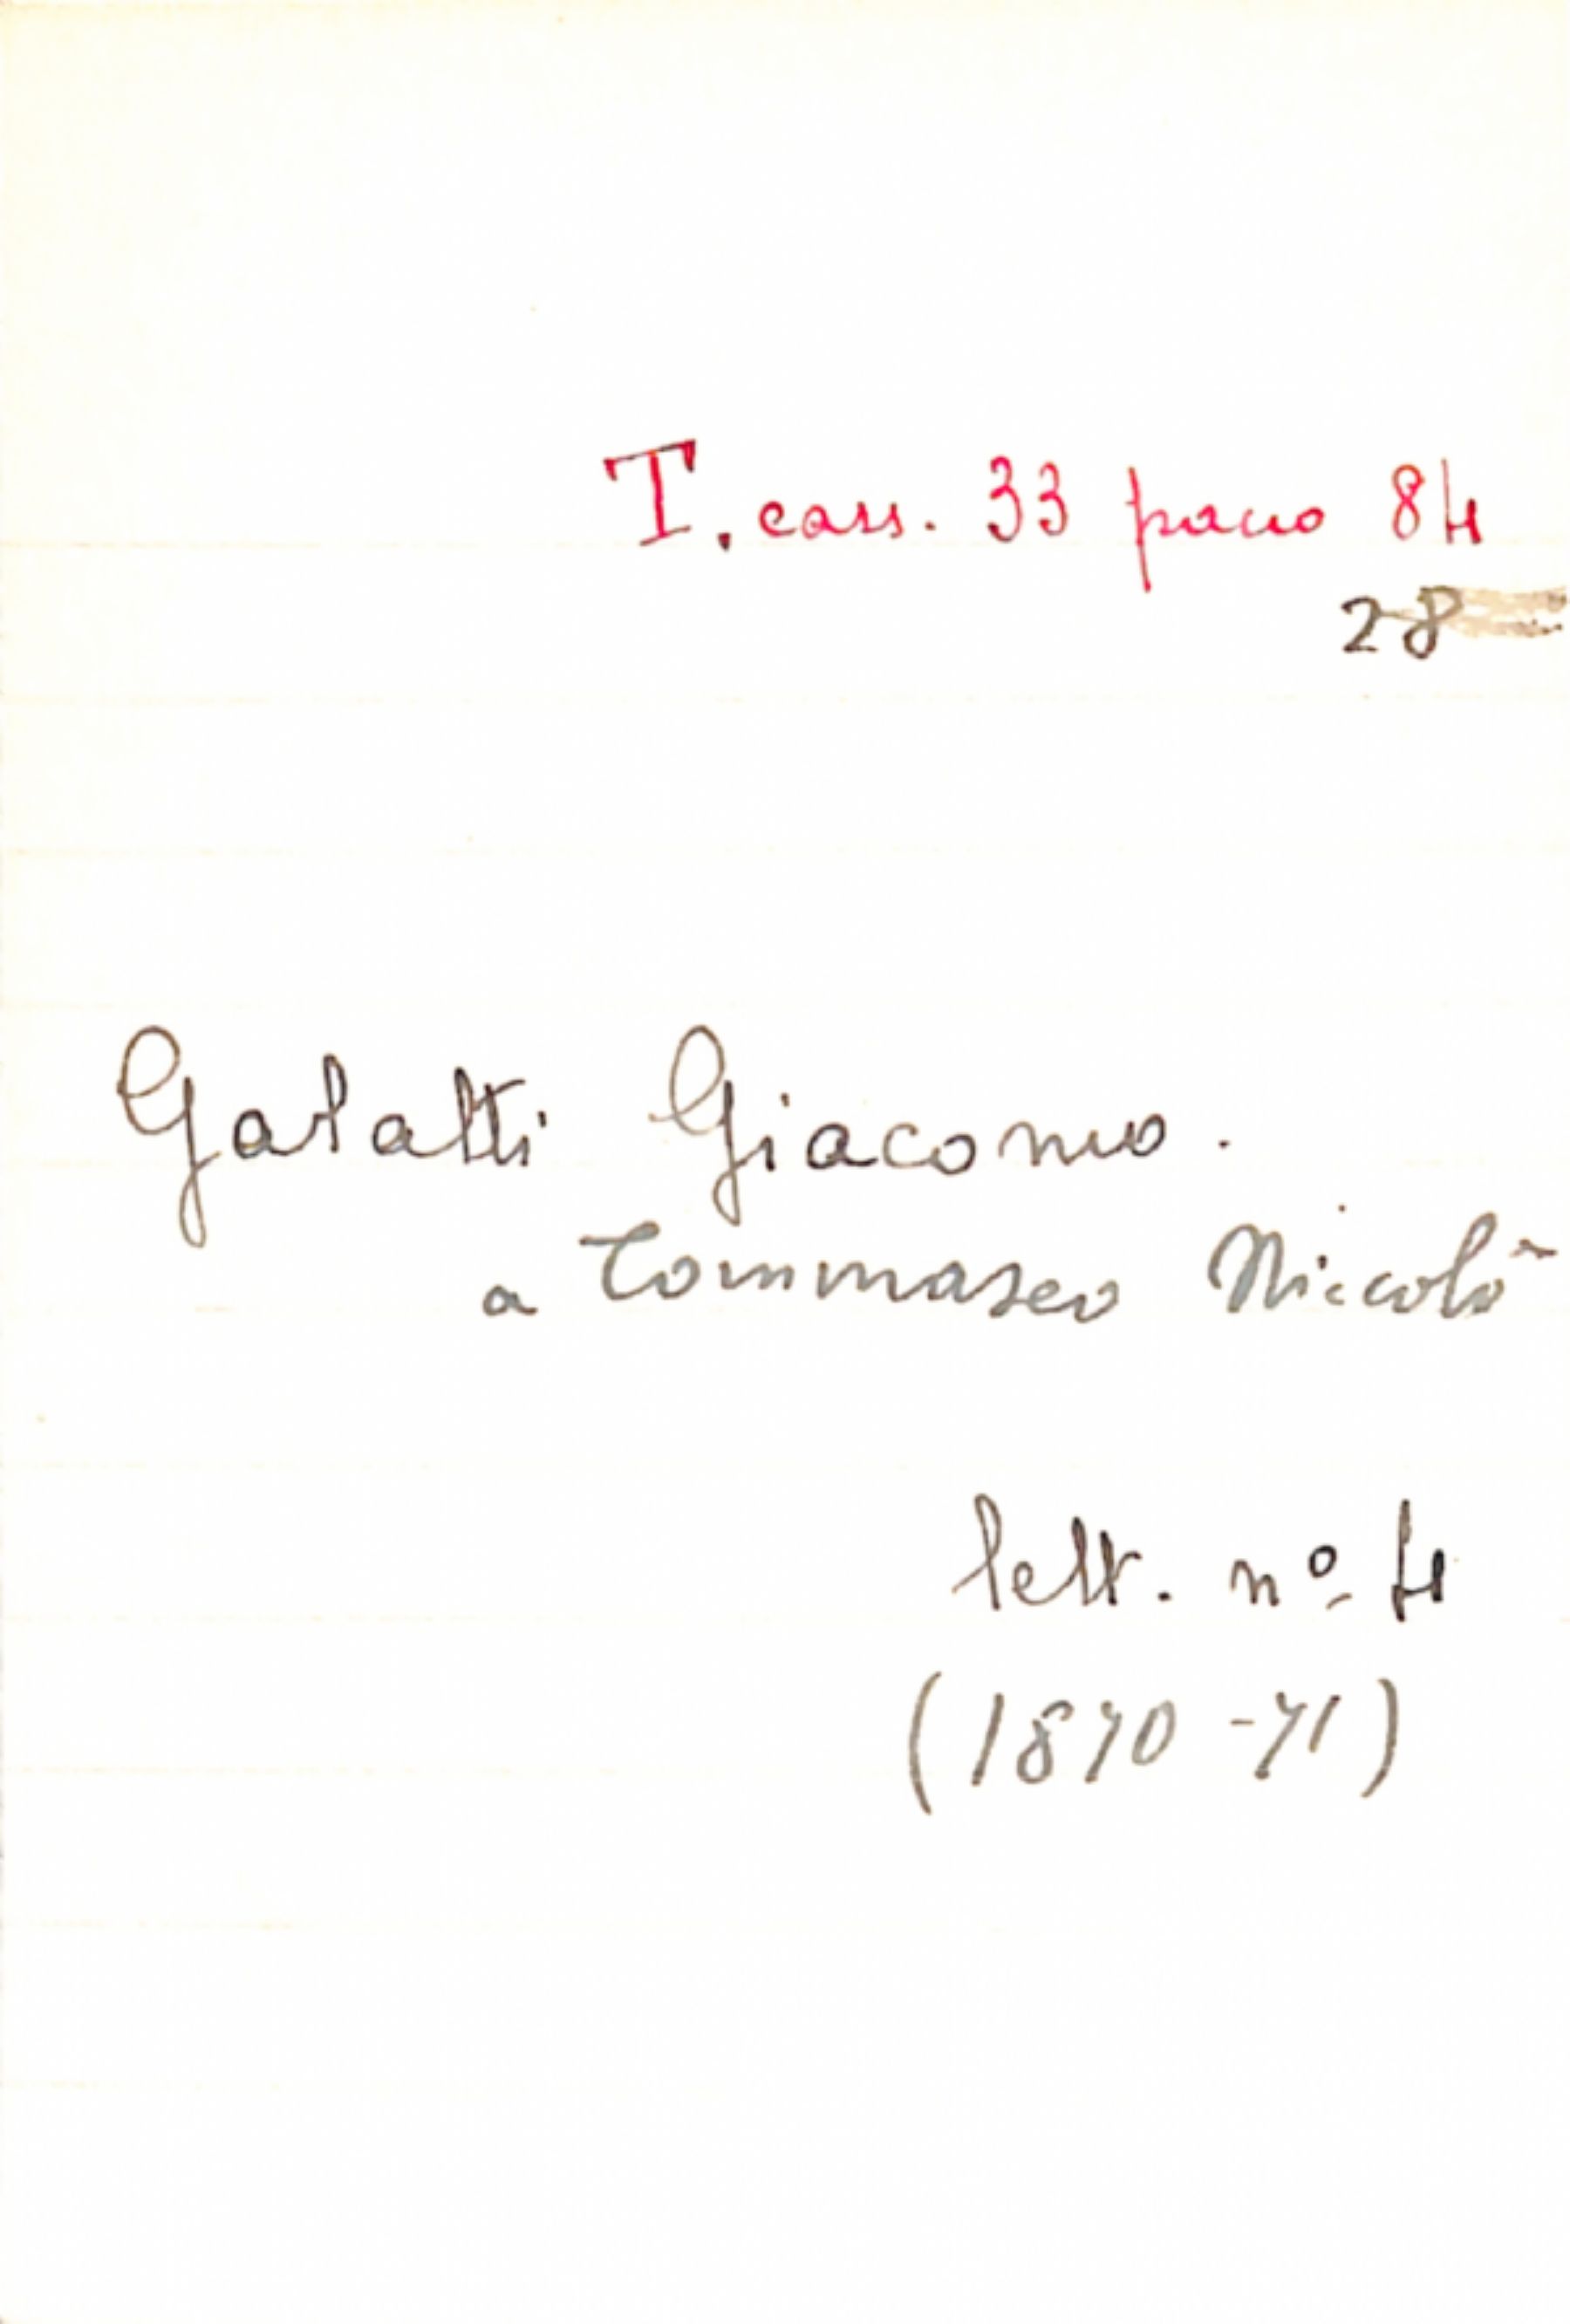 T. cass. 33 pacco 84
28
Galatti Giacomo.
a Tommaseo Niccolò
lett. nº 4
(1870-71)